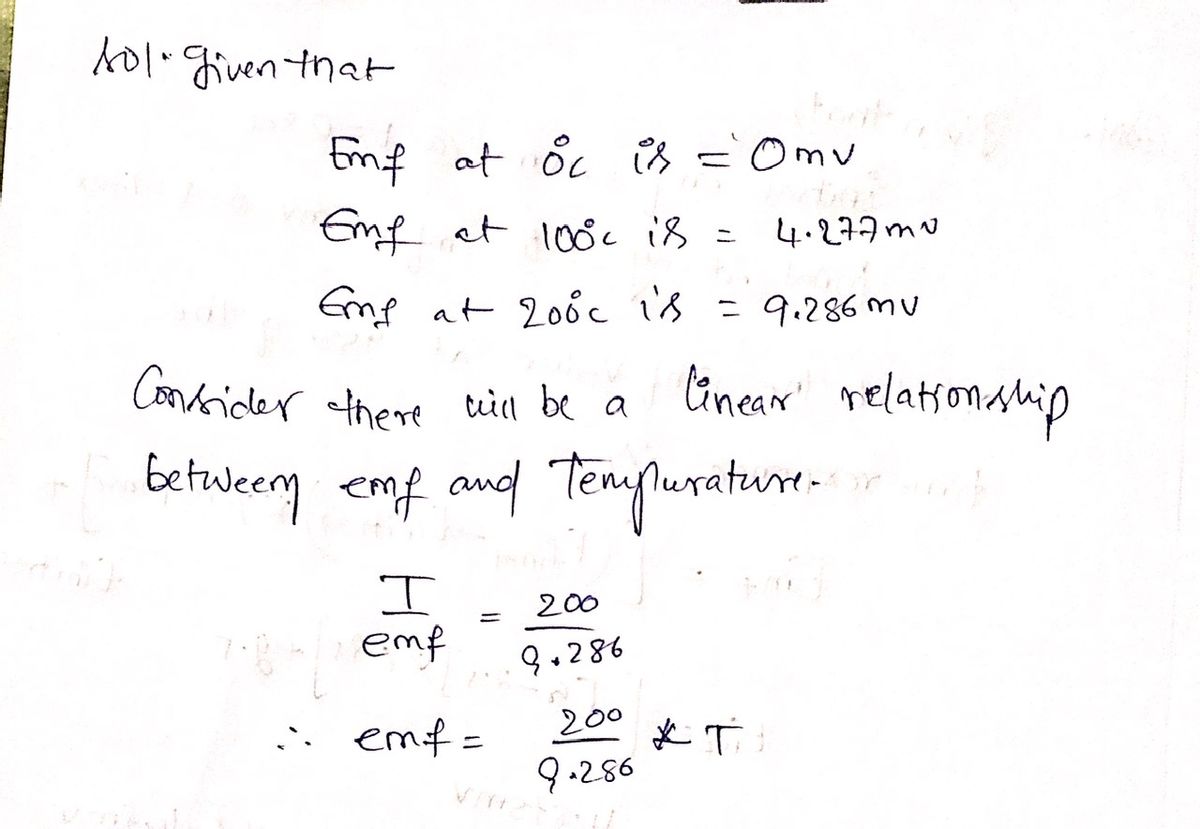 Sol. given that
Emf at 0°c is = 0mv
Emf at 100°c is = 4.277mv
Emf at 200°c is = 9.286mv
Consider there will be a linear relationship
between emf and Tempurature.
T/emf = 200/9.286
∴ emf = 200/9.286 * T